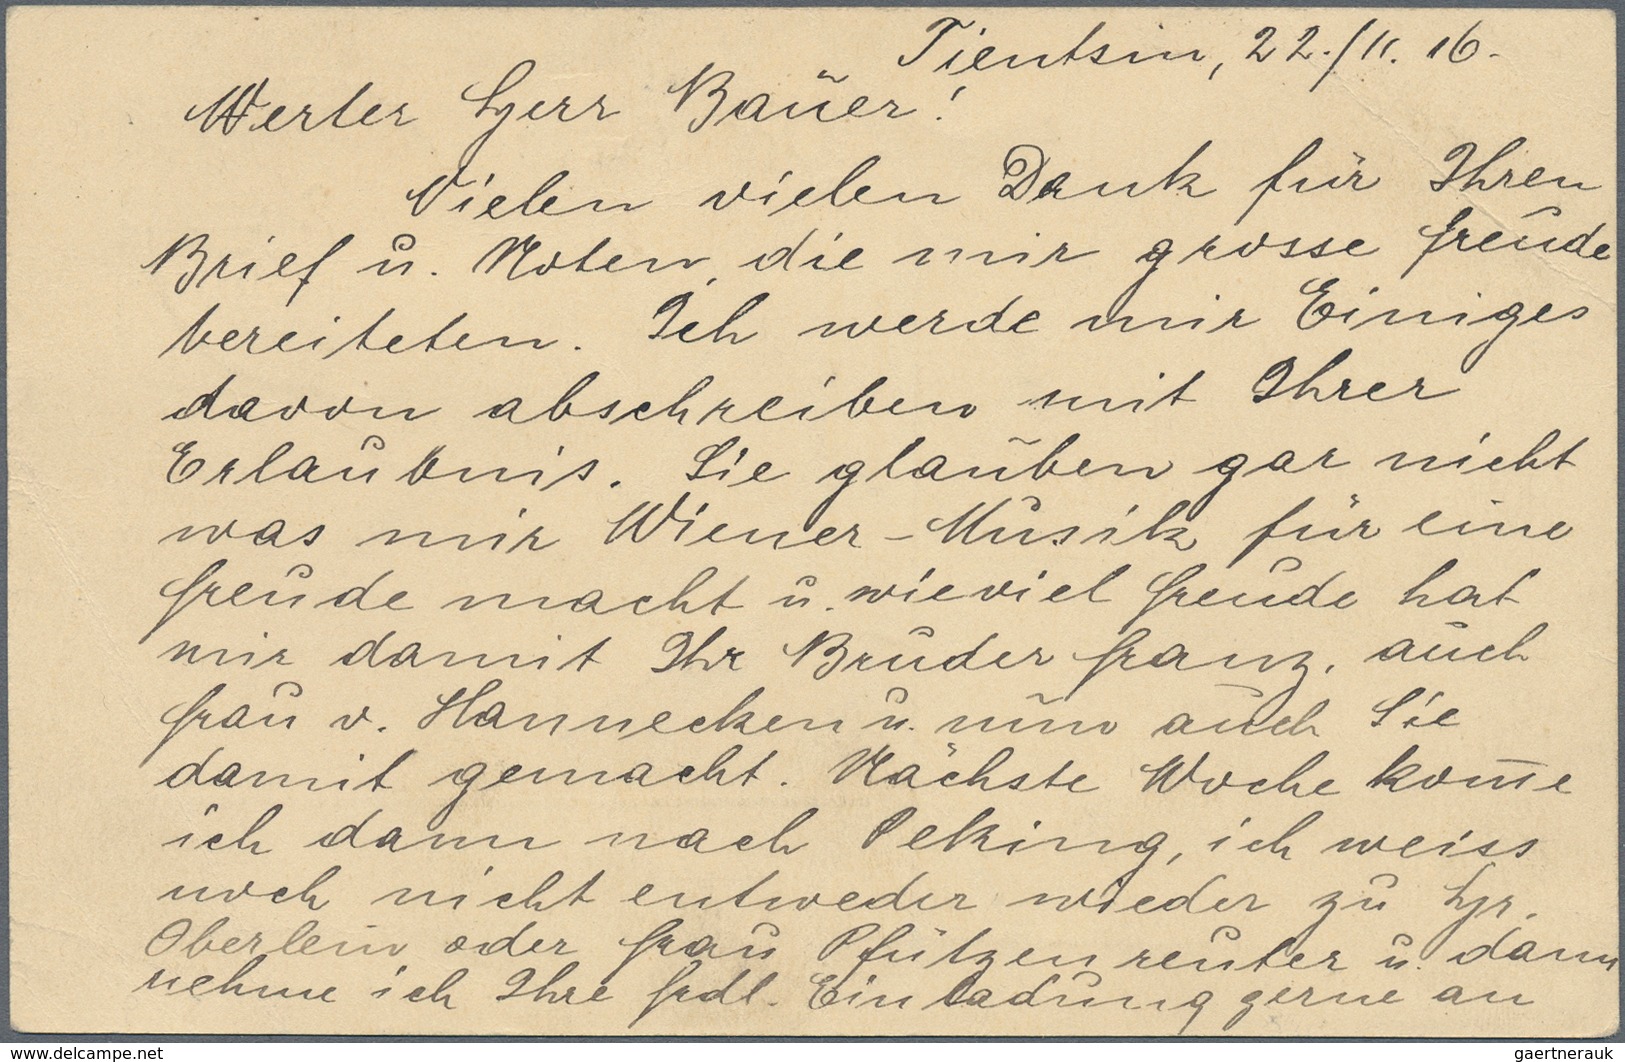 Tientsin, 22./11. 16.
Werter Herr Bauer!
Vielen vielen Dank für Ihren
Brief u. Noten, die mir grosse Freude
bereiteten. Ich werde mir Einiges
davon abschreiben mit Ihrer
Erlaubnis. Sie glauben gar nicht
was mir Wiener-Musik für eine
Freude macht u. wieviel Freude hat
mir damit Ihr Bruder Franz, auch
Frau v. Hannecken u. nun auch Sie
damit gemacht. Nächste Woche kom̅e
ich dann nach Peking, ich weiss
noch nicht entweder wieder zu Hr.
Oberlein oder Frau Pfützenreuter u. dann
nehme ich Ihre frdl. Einladung gerne an
www.delcampe.net
gaertnerauk